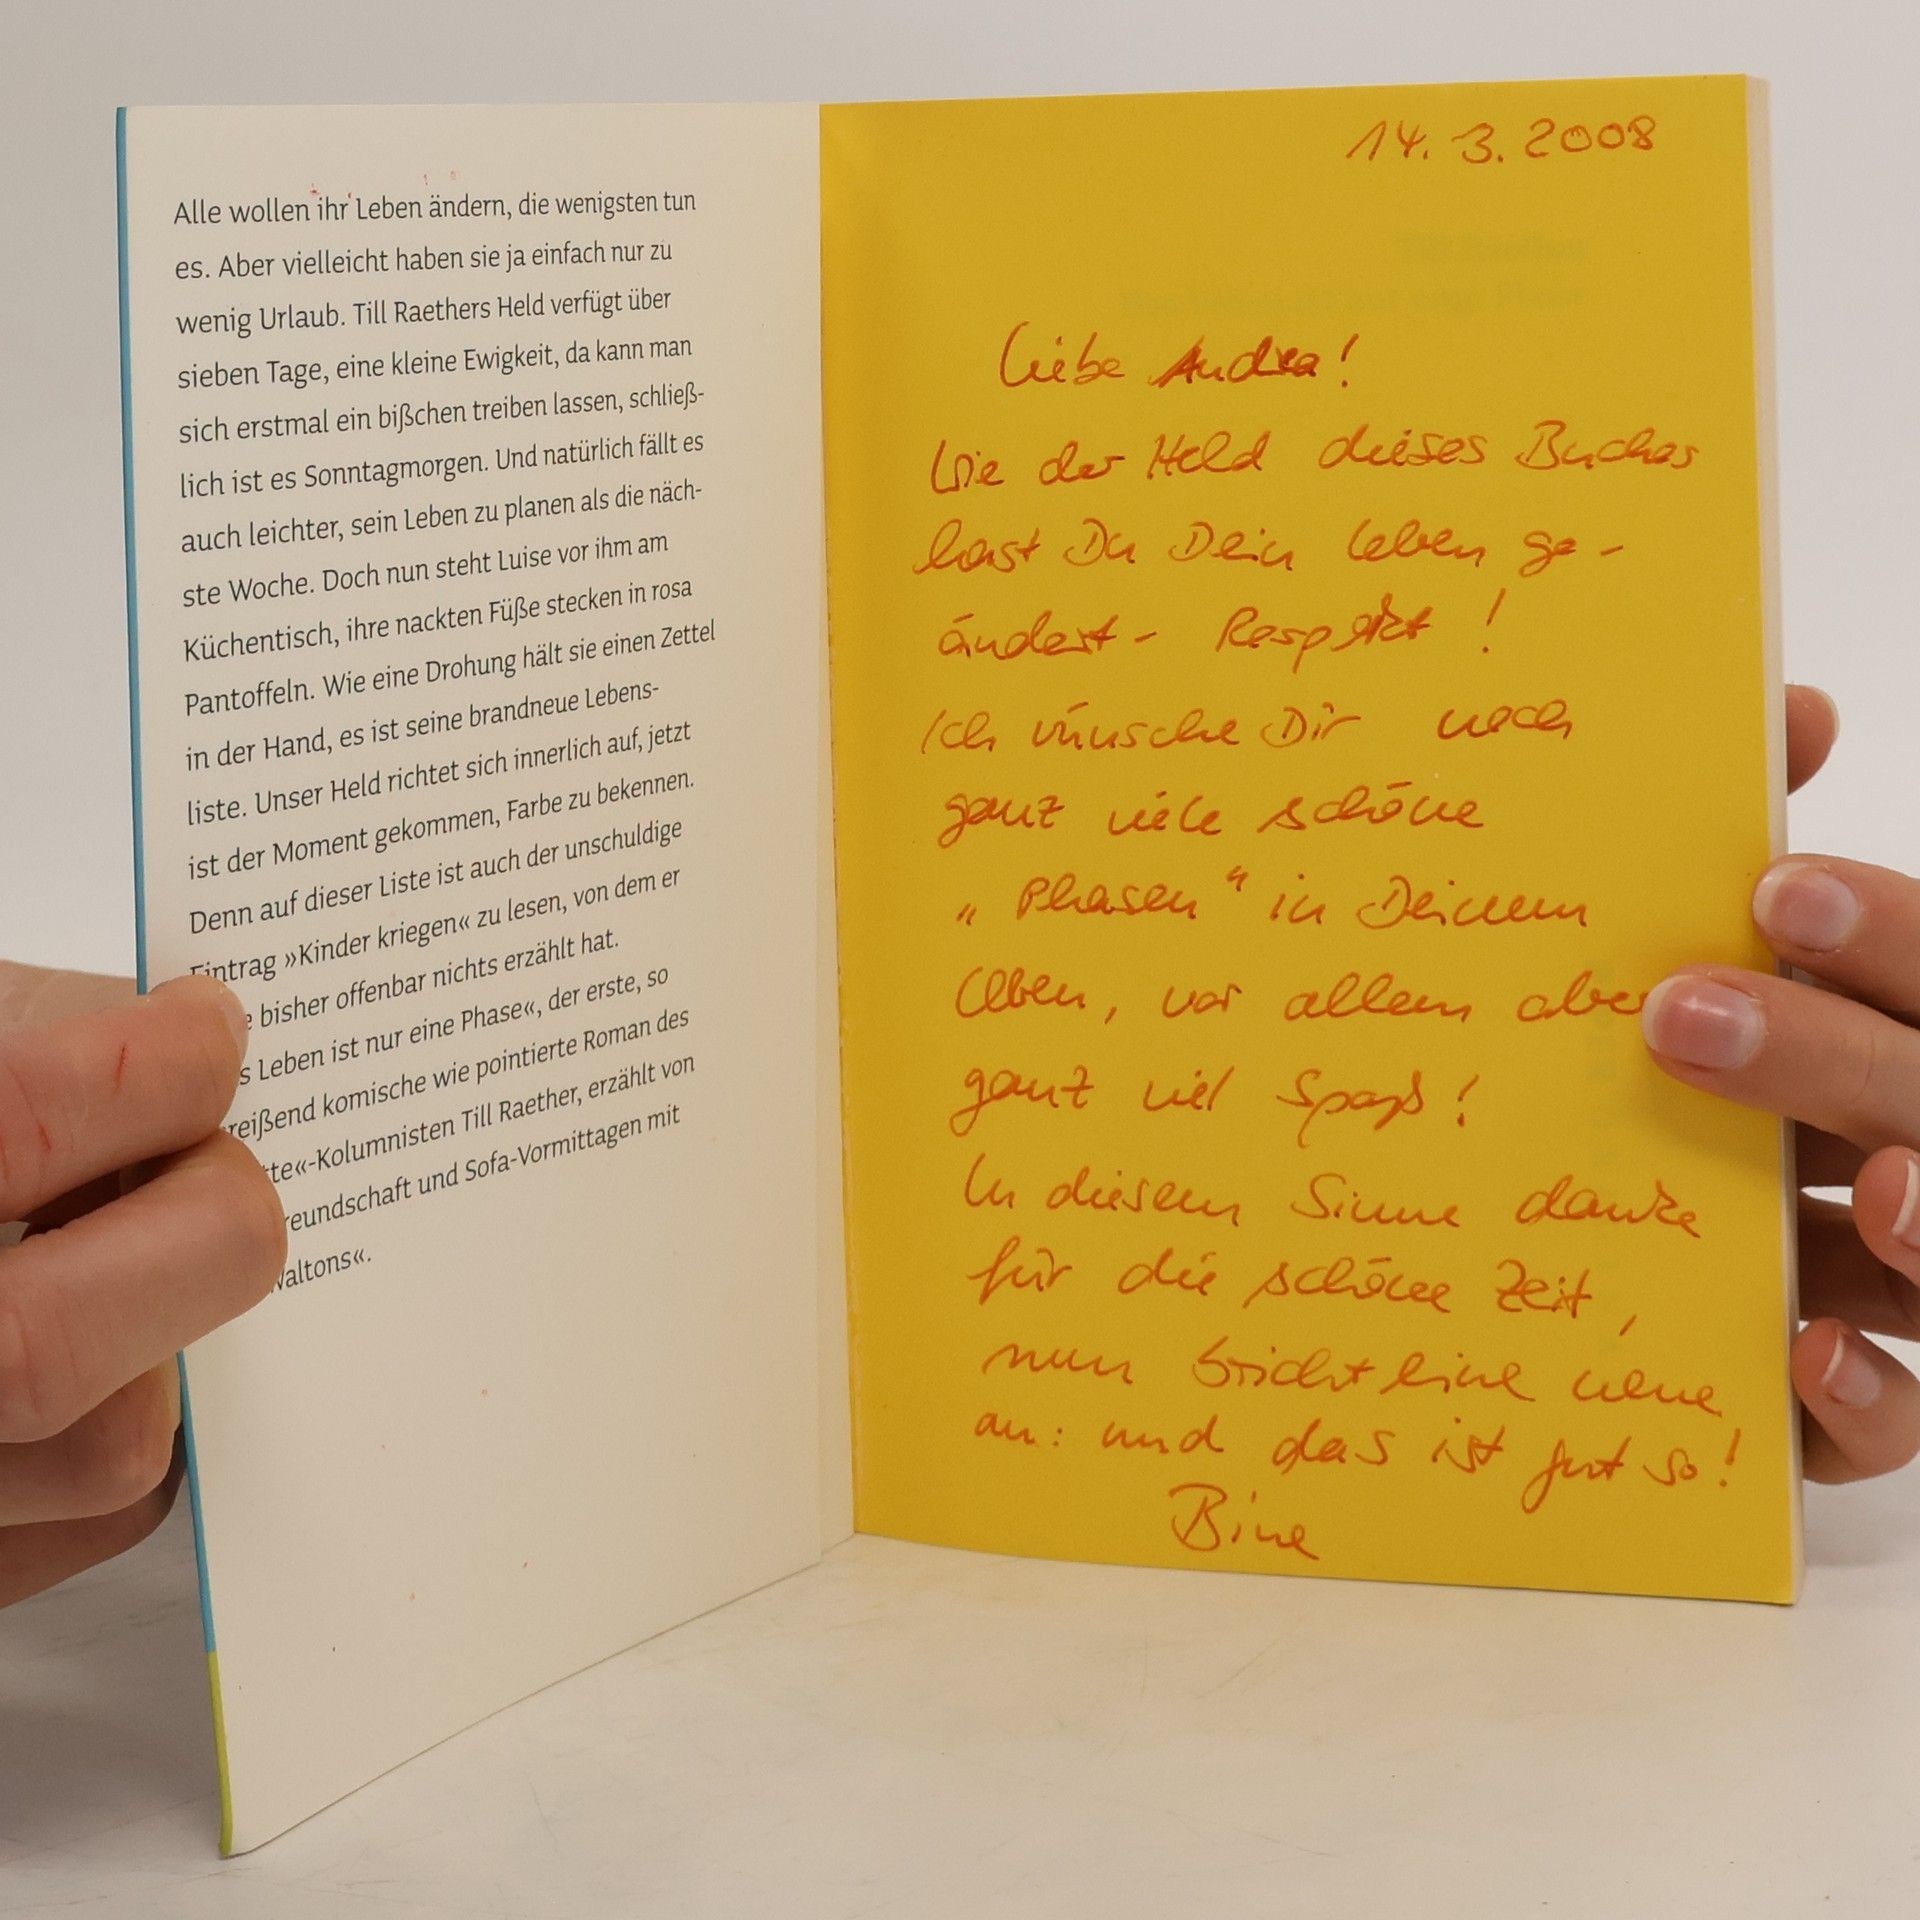 Alle wollen ihr Leben ändern, die wenigsten tun
es. Aber vielleicht haben sie ja einfach nur zu
wenig Urlaub. Till Raethers Held verfügt über
sieben Tage, eine kleine Ewigkeit, da kann man
sich erstmal ein bißchen treiben lassen, schließ-
lich ist es Sonntagmorgen. Und natürlich fällt es
auch leichter, sein Leben zu planen als die näch-
ste Woche. Doch nun steht Luise vor ihm am
Küchentisch, ihre nackten Füße stecken in rosa
Pantoffeln. Wie eine Drohung hält sie einen Zettel
in der Hand, es ist seine brandneue Lebens-
liste. Unser Held richtet sich innerlich auf, jetzt
ist der Moment gekommen, Farbe zu bekennen.
Denn auf dieser Liste ist auch der unschuldige
Eintrag »Kinder kriegen« zu lesen, von dem er
bisher offenbar nichts erzählt hat.
s Leben ist nur eine Phase«, der erste, so
reißend komische wie pointierte Roman des
tte«-Kolumnisten Till Raether, erzählt von
reundschaft und Sofa-Vormittagen mit
Waltons«.
14. 3. 2008
Liebe Andrea!
Wie der Held dieses Buches
hast Du Dein Leben ge-
ändert - Respekt!
Ich wünsche Dir noch
ganz viele schöne
„Phasen“ in Deinem
Leben, vor allem aber
ganz viel Spaß!
In diesem Sinne danke
für die schöne Zeit,
nun bricht eine neue
an: und das ist gut so!
Bine